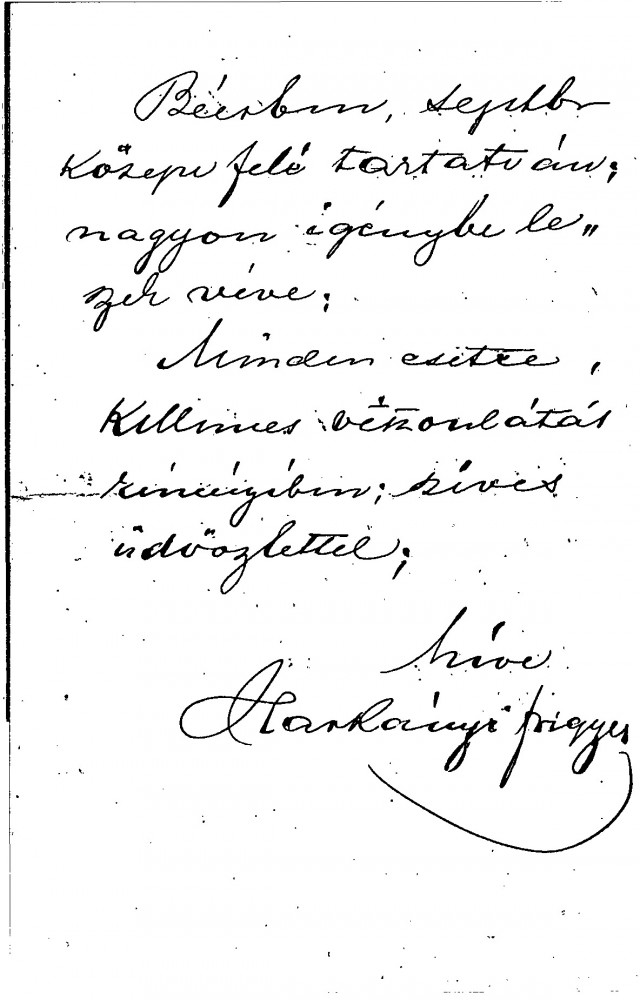 Bécsben, septbr
közepe felé tartatván;
nagyon igénybe le„
szek véve;
Minden esetre,
Kellemes viszonlátás
reményében; szíves
üdvözlettel;
híve
Harkányi Frigyes